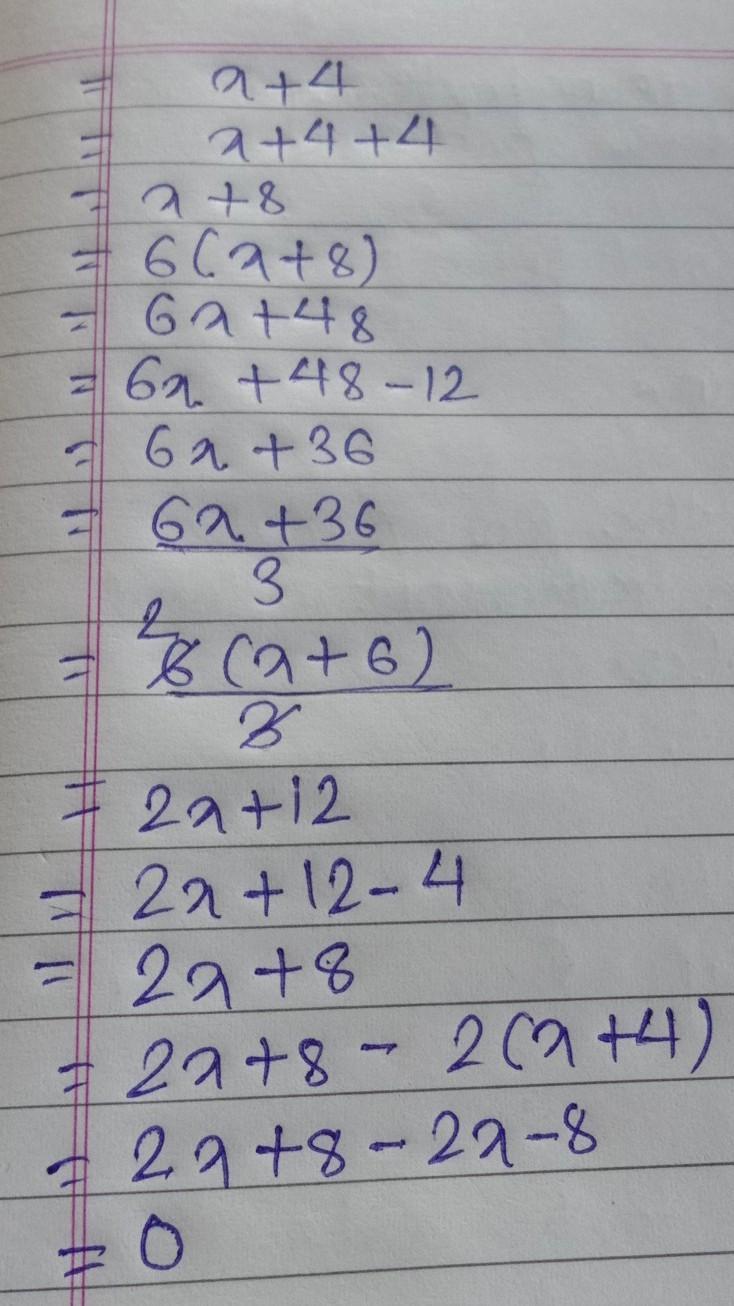 = x+4
= x+4+4
= x+8
= 6(x+8)
= 6x+48
= 6x+48-12
= 6x+36
= 6x+36
3
2
= 6(x+6)
3
= 2x+12
= 2x+12-4
= 2x+8
= 2x+8-2(x+4)
= 2x+8-2x-8
= 0